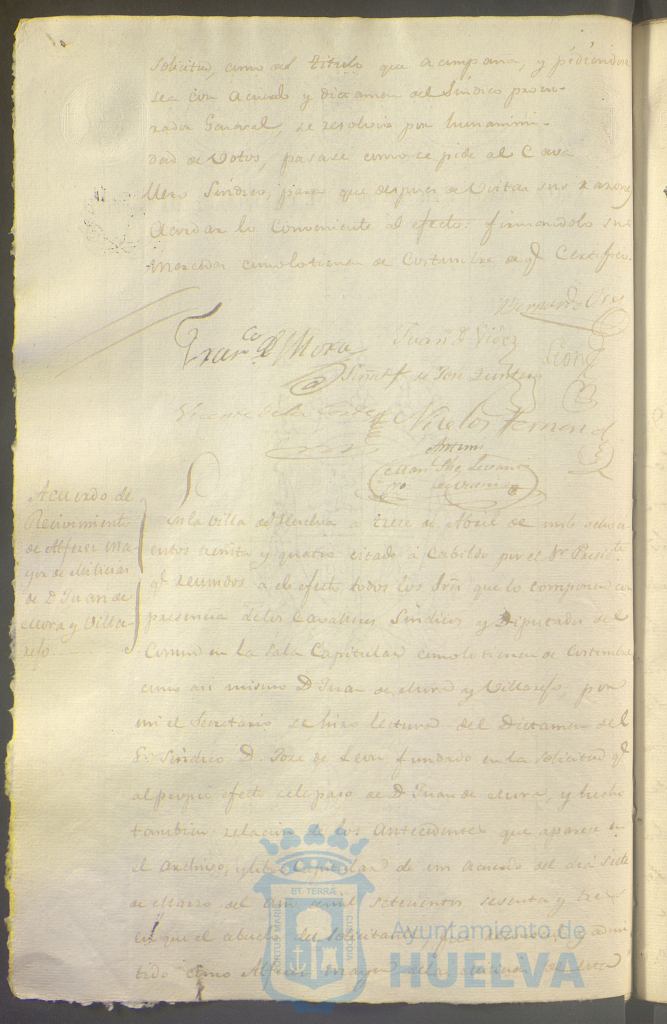 Solicitud, como del titulo que acompaña, y pidiendose
sea con acuerdo y dictamen del Síndico procu-
rador General, se resolvio por hunanimi-
dad de Votos, pasase como se pide al Cava
llero Síndico, para que despues de Vistas sus razones
Acordar lo Conveniente al efecto: firmandolo sus
Mercedes como lo tienen de Costumbre de q.e Certifico.
Franco. de Mora
Juan D.
Leon
de Jose Quintero
Vicente de la Corte
Nicolas Fernand
Antemi
Acuerdo de
Recivimiento
de Alferez ma
yor de Milicias
de D. Juan de
Mora y Villa
rejo
En la Villa de Huelva a trese de Abril de mil ochoci
entos treinta y quatro citado á Cabildo por el Sr. Presid.te
q.e reunidos a el efecto todos los Sres. que lo componen con
presencia de los Cavalleros Síndicos y Diputados del
Comun en la Sala Capitular como lo tienen de Costumbre
como asi mismo D. Juan de Mora y Villarejo, por
mi el Secretario se hizo lectura del Dictamen del
Sr. Síndico D. Jose de Leon fundado en la solicitud q.e
al propio efecto de D. Juan de Mora, y hecho
tambien relacion de los Antecedentes que aparese en
el Archivo, y libro Capitular de un acuerdo del dia siete
de Marzo del año de mil setecientos sesenta y tres
en que el abuelo del solicitante, fue y admi
tido como Alferez mayor de la
ET TERRÆ
PORTUS MARIS
CUSTODIA
Ayuntamiento de
HUELVA